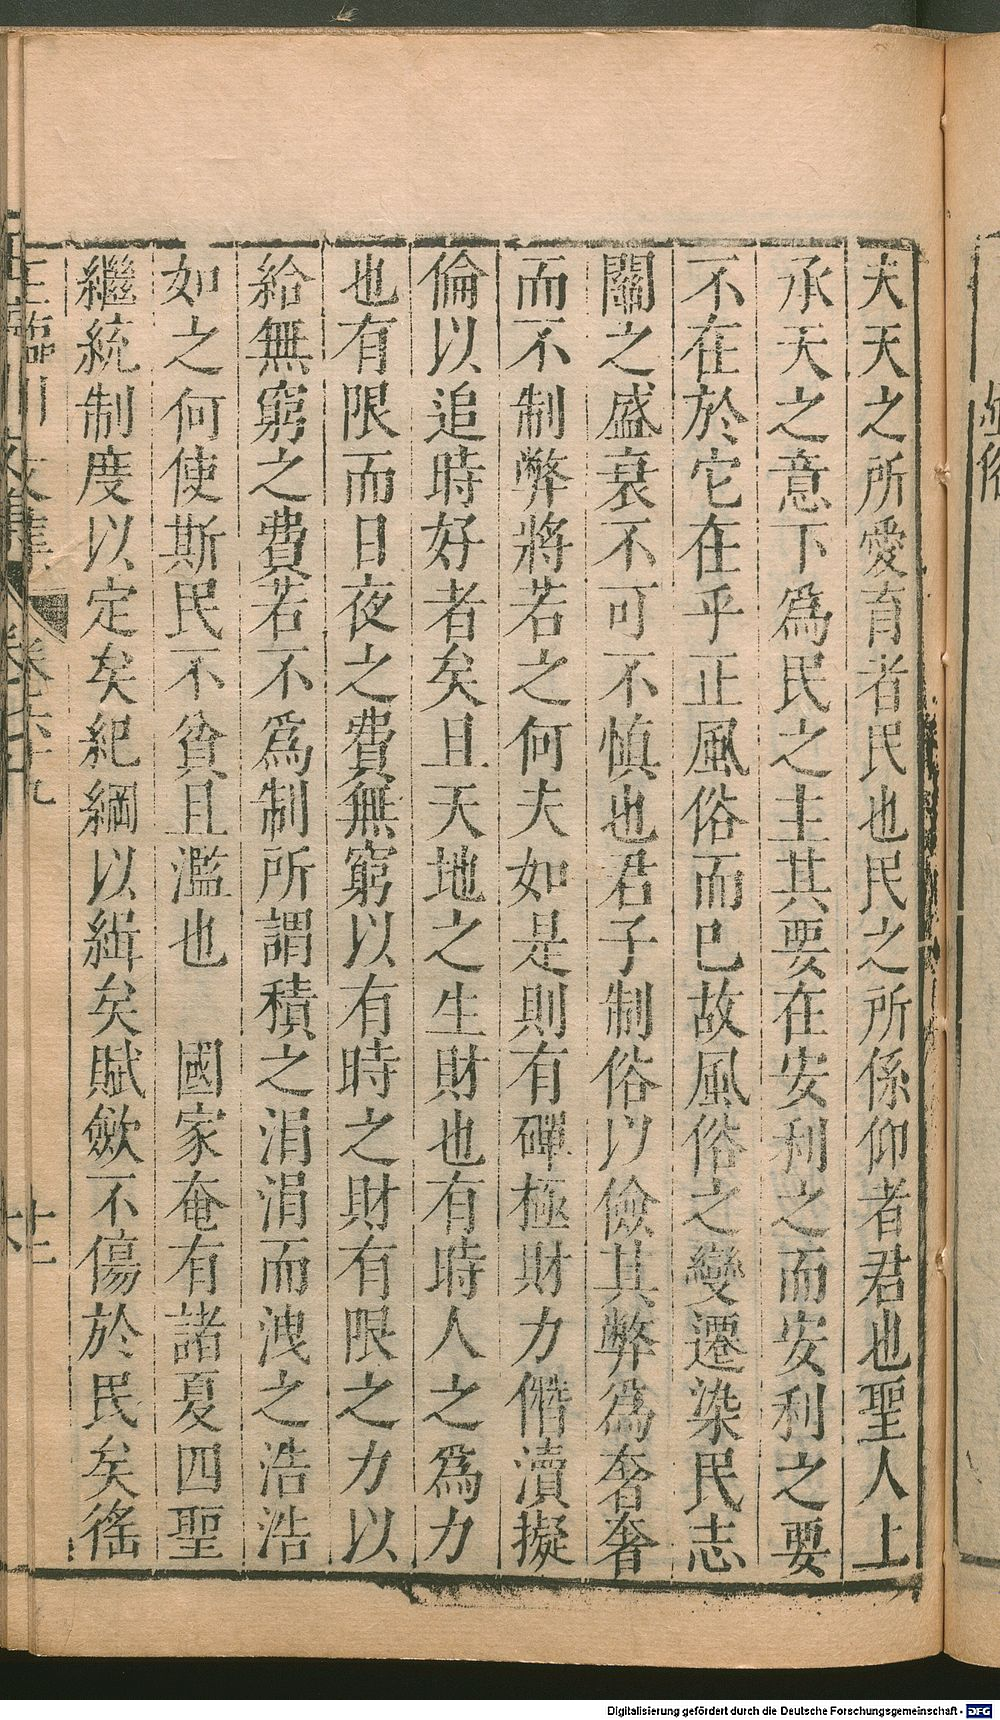 夫天之所愛育者民也民之所係仰者君也聖人上
承天之意下爲民之主其要在安利之而安利之要
不在於它在乎正風俗而已故風俗之變遷染民志
關之盛衰不可不慎也君子制俗以儉其弊爲奢奢
而不制弊將若之何夫如是則有磾極財力僭瀆擬
倫以追時好者矣且天地之生財也有時人之爲力
也有限而日夜之費無窮以有時之財有限之力以
給無窮之費若不爲制所謂積之涓涓而洩之浩浩
如之何使斯民不貧且濫也　國家奄有諸夏四聖
繼統制度以定矣紀綱以緝矣賦歛不傷於民矣徭
王臨川文集 卷六十九 十二
Digitalisierung gefördert durch die Deutsche Forschungsgemeinschaft - DFG